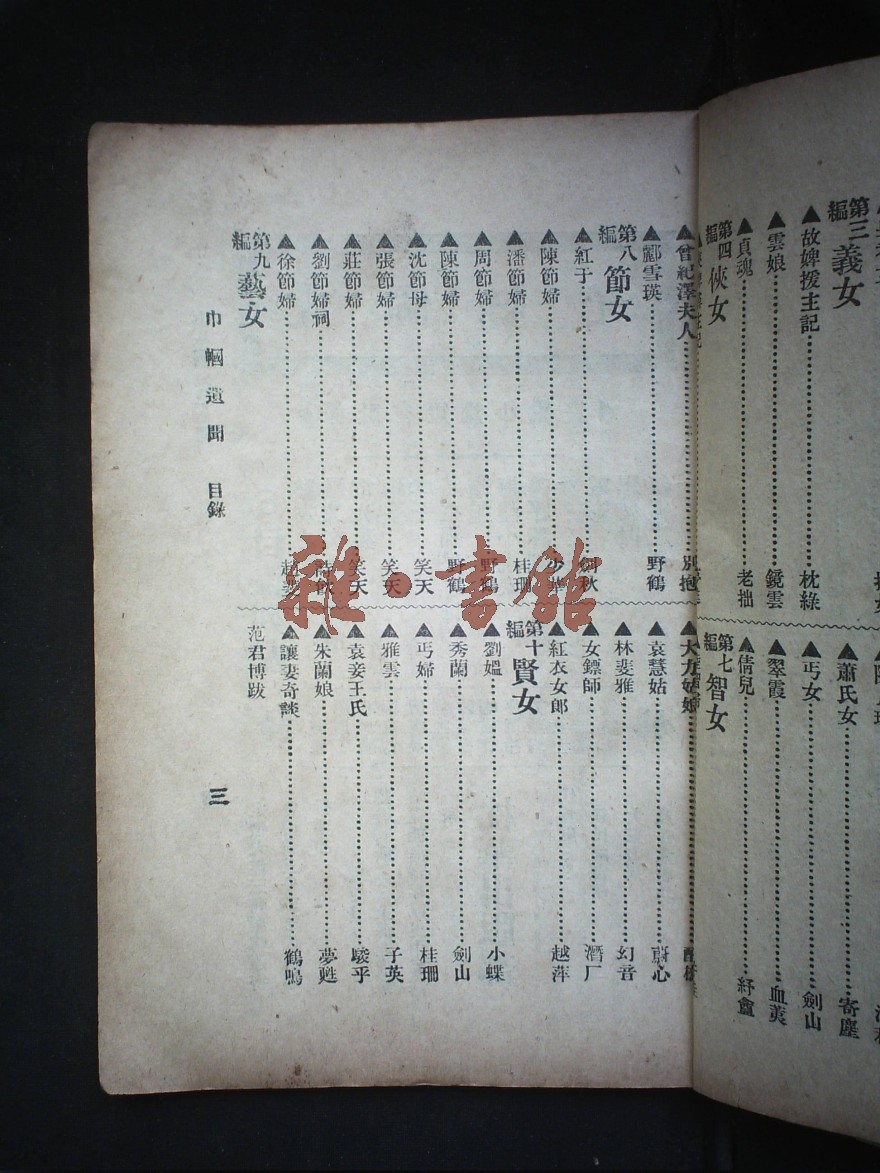 第三編 義女
▲故婢援主記 枕綠
▲雲娘 鏡雲
▲貞魂 老拙
第四編 俠女
蕭氏女 寄塵
▲丐女 劍山
▲翠霞 血蕘
▲倩兒 紓盦
第七編 智女
▲曾紀澤夫人
▲酈雪瑛 野鶴
第八編 節女
▲紅于 劍秋
▲陳節婦
▲潘節婦 桂珊
▲周節婦 野鶴
▲陳節婦 野鶴
▲沈節母 笑天
▲張節婦 笑天
▲莊節婦 笑天
▲劉節婦祠
▲徐節婦
第九編 藝女
▲大力姑娘
▲袁慧姑 蔚心
▲林斐雅 幻音
▲女鏢師 潛厂
▲紅衣女郎 越萍
第十編 賢女
▲劉媼 小蝶
▲秀蘭 劍山
▲丐婦 桂珊
▲雅雲 子英
▲袁妾王氏 駿乎
▲朱蘭娘 夢甦
▲讓妻奇談 鶴鳴
范君博跋
巾幗遺聞 目錄
三
雜·書館